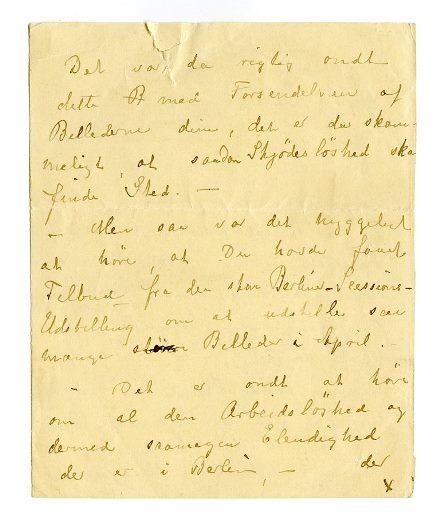 Det var da rigtig ondt
dette med Forsendelsen af
Billederne dine, det er da skam-
meligt, at saadan Skjødesløshed ska
finde Sted. –
– Men saa var det hyggeligt
at höre, at Du havde faaet
Tilbud fra den store Berlin-Secessions-
Udstilling om at udstille saa
mange Billeder i April. –
– Det er ondt at höre
om al den Arbeidsløshed og
dermed saamegen Elendighed
der er i Berlin, – der
x